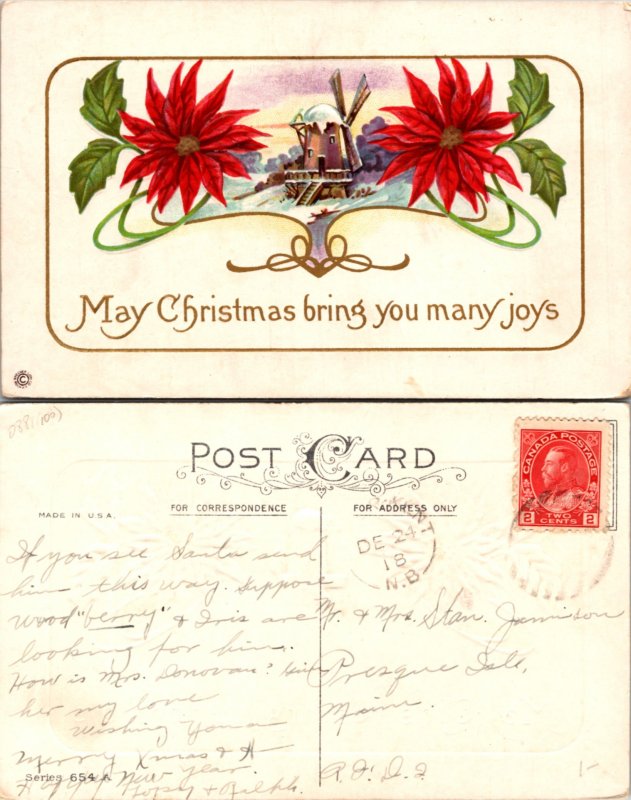 May Christmas bring you many joys
POST CARD
FOR CORRESPONDENCE
FOR ADDRESS ONLY
MADE IN U.S.A.
CANADA POSTAGE
2 TWO CENTS 2
DE 24
18
N.B.
If you see Santa send
him this way. Suppose
Wood "berry" & Iris are
looking for him.
How is Mrs. Donovan? Give
her my love
Wishing you a
Merry Xmas & A
Happy New Year.
& Ralph.
Series 654 A
Mr. & Mrs. Stan. Jamison
Presque Isle,
Maine.
R.F.D. 2
1-